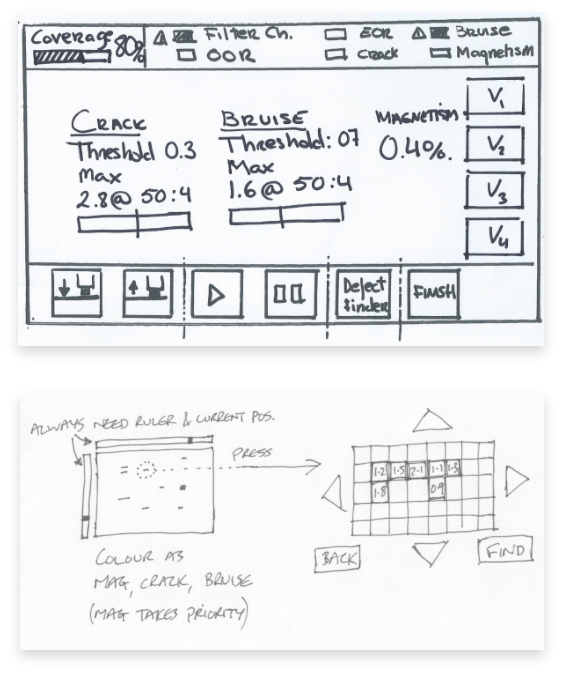 Coverage 80% Filter Ch. EOR Bruise
OOR Crack Magnetism
CRACK
Threshold 0.3
Max
2.8@ 50:4
BRUISE
Threshold: 07
Max
1.6@ 50:4
MAGNETISM
0.4%.
V1
V2
V3
V4
Defect
finder
FINISH
ALWAYS NEED RULER & CURRENT POS.
PRESS
1.2 1.5 2.1 1.1 1.3
1.8 0.9
BACK
FIND
COLOUR AS
MAG, CRACK, BRUISE
(MAG TAKES PRIORITY)